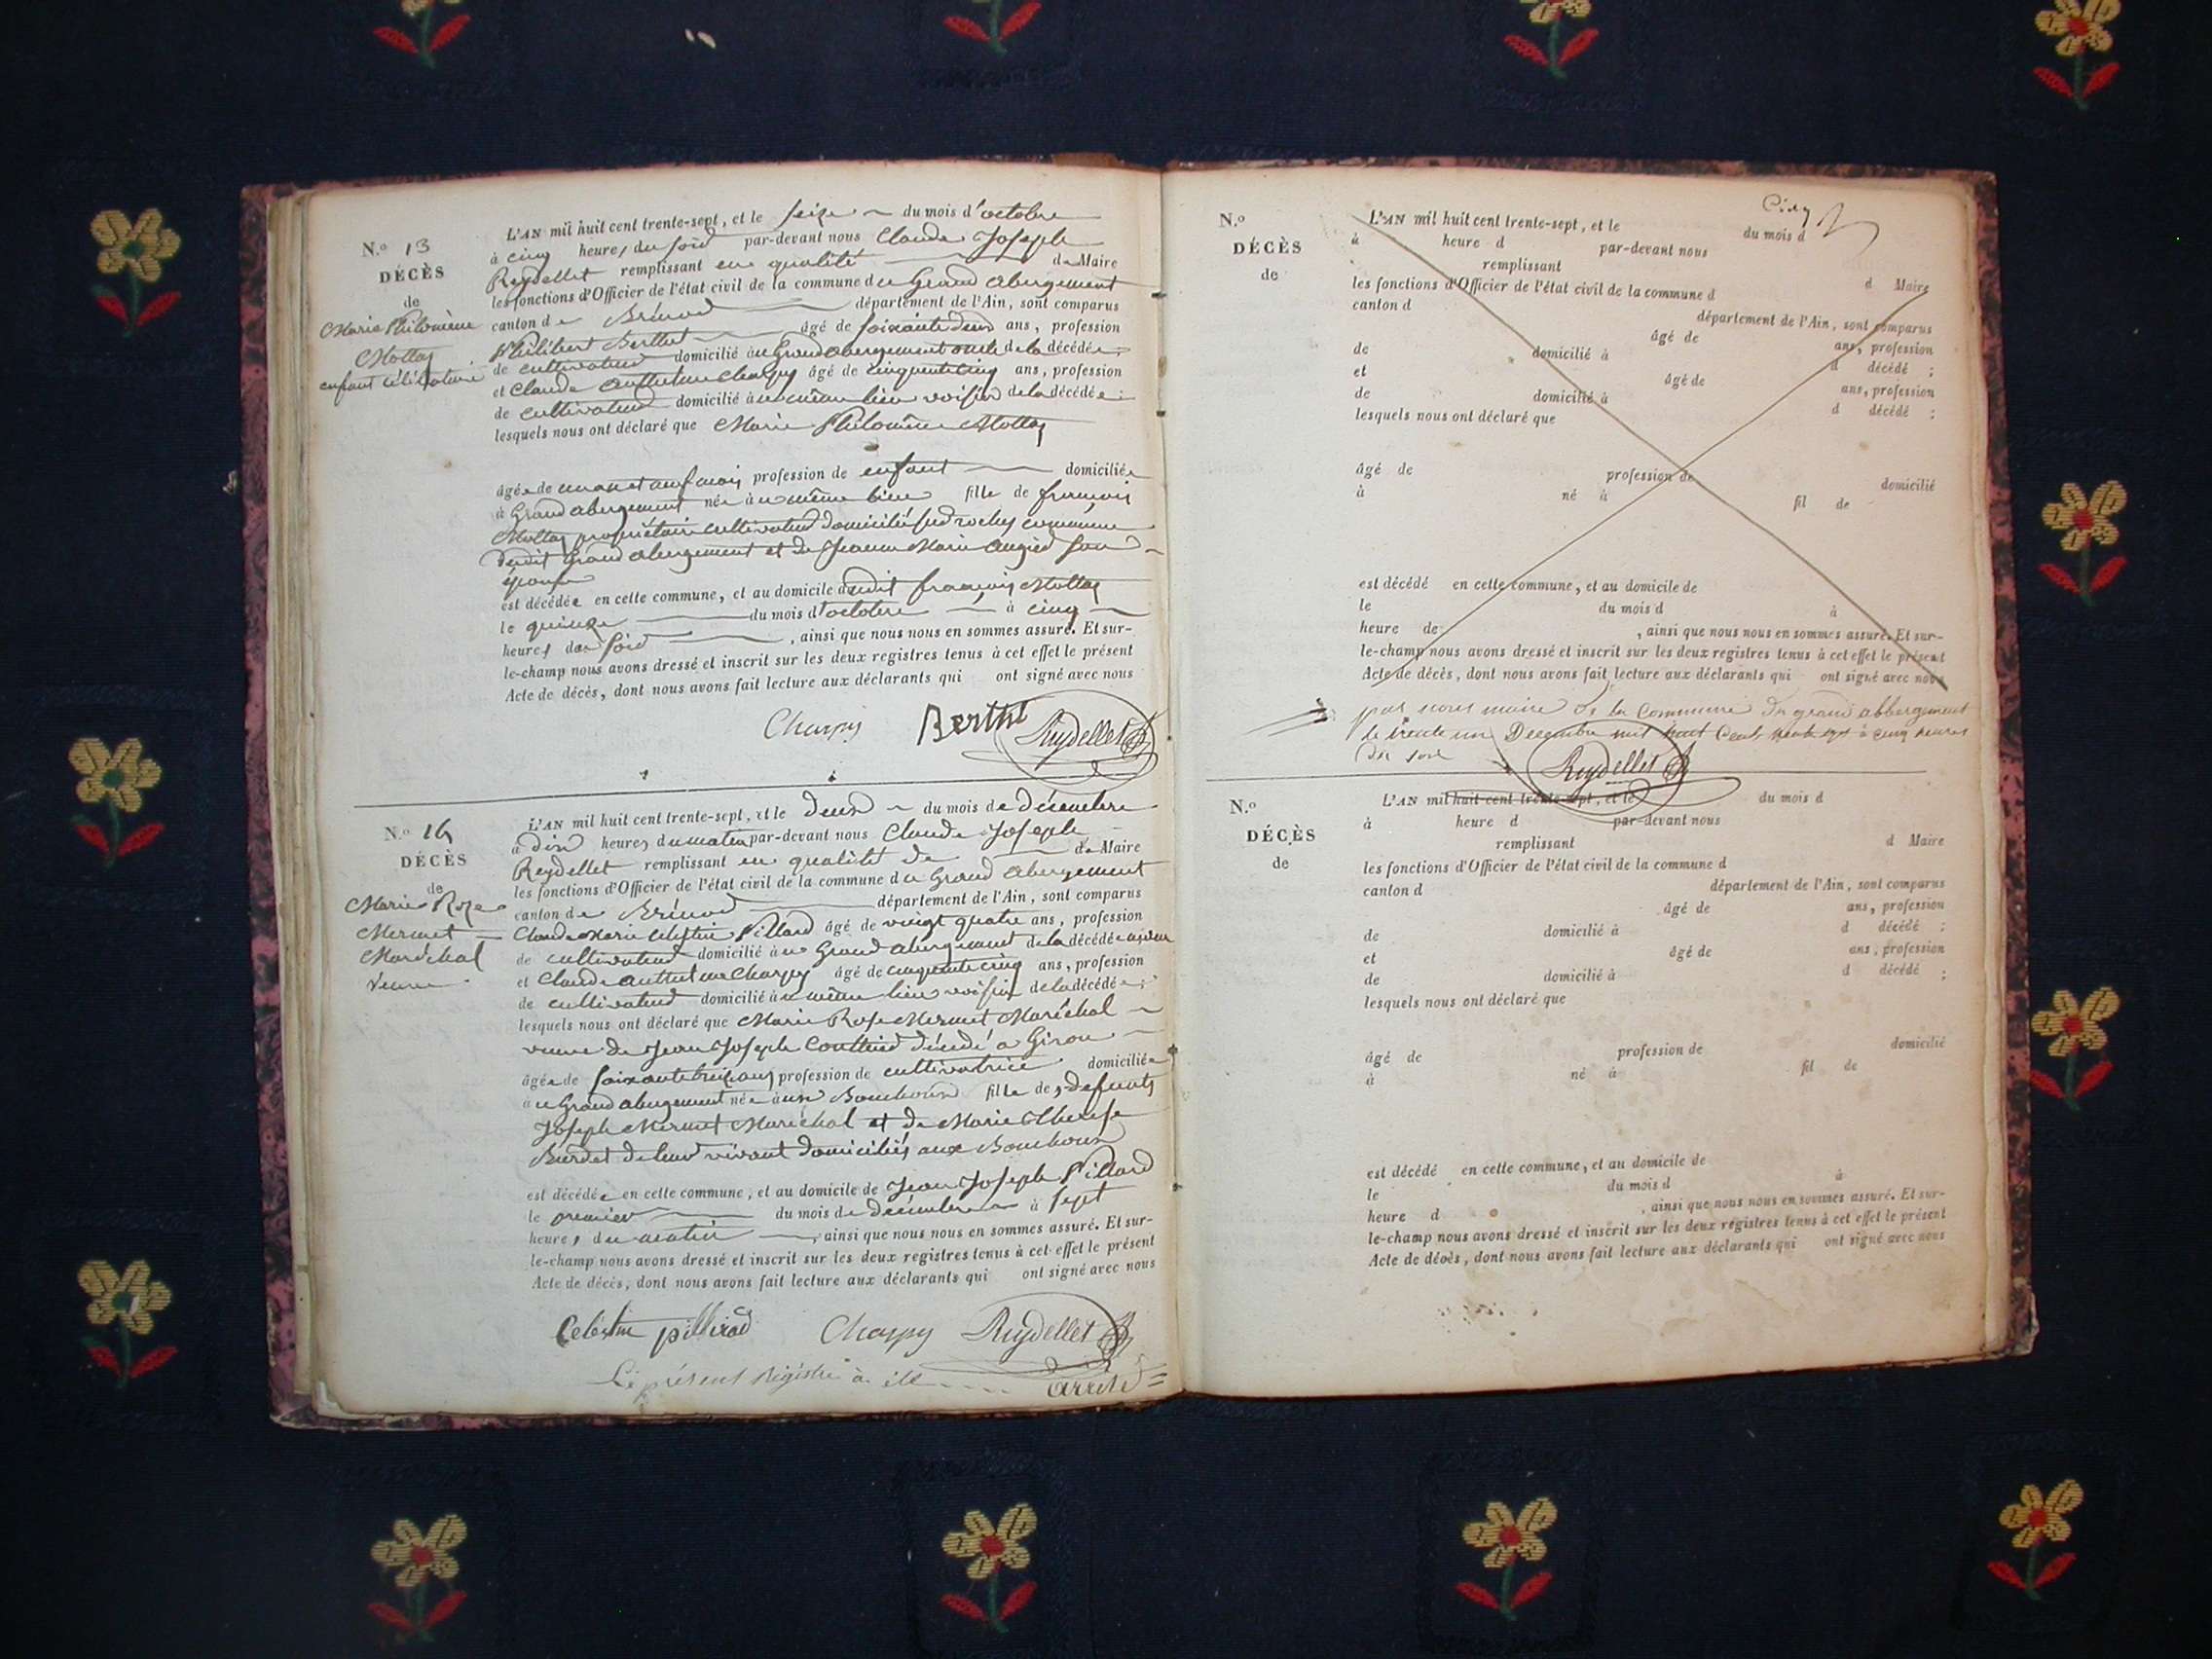 N.o 13
DÉCÈS
de
Marie Philomène
Mottay
enfant célibataire
L'AN mil huit cent trente-sept, et le seize du mois d'octobre
à cinq heures du soir par-devant nous Claude Joseph
Reydellet remplissant en qualité de Maire
les fonctions d'Officier de l'état civil de la commune du Grand abergement
canton de Brénod département de l'Ain, sont comparus
Philibert Berthet âgé de soixante deux ans, profession
de cultivateur domicilié au Grand abergement oncle de la décédée;
et Claude Anthelme Charpy âgé de cinquante cinq ans, profession
de cultivateur domicilié au même lieu voisin de la décédée;
lesquels nous ont déclaré que Marie Philomène Mottay
âgée de un an et neuf mois profession de enfant domiciliée
à Grand abergement née au même lieu fille de françois
Mottay propriétaire cultivateur domicilié commune
dudit Grand abergement et de Jeanne Marie son
épouse
est décédée en cette commune, et au domicile dudit françois Mottay
le quinze du mois d'octobre à cinq
heures du soir, ainsi que nous nous en sommes assuré. Et sur-
le-champ nous avons dressé et inscrit sur les deux registres tenus à cet effet le présent
Acte de décès, dont nous avons fait lecture aux déclarants qui ont signé avec nous
Charpy Berthet Reydellet
N.o 14
DÉCÈS
de
Marie Rose
Mermet
Maréchal
veuve
L'AN mil huit cent trente-sept, et le deux du mois de décembre
à dix heures du matin par-devant nous Claude Joseph
Reydellet remplissant en qualité de de Maire
les fonctions d'Officier de l'état civil de la commune du Grand abergement
canton de Brénod département de l'Ain, sont comparus
Claude Marie Célestin Pillard âgé de vingt quatre ans, profession
de cultivateur domicilié au Grand abergement de la décédée
et Claude Anthelme Charpy âgé de cinquante cinq ans, profession
de cultivateur domicilié au même lieu voisin de la décédée;
lesquels nous ont déclaré que Marie Rose Mermet Maréchal
veuve de Jean Joseph décédé à Giron
âgée de soixante treize ans profession de cultivatrice domiciliée
au Grand abergement née aux Bouchoux fille de defunts
Joseph Mermet Maréchal et de Marie Therese
Burdet de leur vivant domiciliés aux Bouchoux
est décédée en cette commune, et au domicile de Jean Joseph Pillard
le premier du mois de décembre à sept
heures du matin, ainsi que nous nous en sommes assuré. Et sur-
le-champ nous avons dressé et inscrit sur les deux registres tenus à cet effet le présent
Acte de décès, dont nous avons fait lecture aux déclarants qui ont signé avec nous
Celestin Charpy Reydellet
Le présent Régistre à été .... arreté =
Cinq
N.o
DÉCÈS
de
L'AN mil huit cent trente-sept, et le du mois d
à heure d par-devant nous
remplissant d Maire
les fonctions d'Officier de l'état civil de la commune d
canton d département de l'Ain, sont comparus
âgé de ans, profession
de domicilié à d décédé ;
et âgé de ans, profession
de domicilié à d décédé ;
lesquels nous ont déclaré que
âgé de profession de domicilié
à né à fil de
est décédé en cette commune, et au domicile de
le du mois d à
heure de , ainsi que nous nous en sommes assuré. Et sur-
le-champ nous avons dressé et inscrit sur les deux registres tenus à cet effet le présent
Acte de décès, dont nous avons fait lecture aux déclarants qui ont signé avec nous
par nous maire de la Commune du grand abbergement
le trente un Decembre mil huit Cent trente sept à cinq heures
du soir
Reydellet
N.o
DÉCÈS
de
L'AN mil huit cent trente-sept, et le du mois d
à heure d par-devant nous
remplissant d Maire
les fonctions d'Officier de l'état civil de la commune d
canton d département de l'Ain, sont comparus
âgé de ans, profession
de domicilié à d décédé ;
et âgé de ans, profession
de domicilié à d décédé ;
lesquels nous ont déclaré que
âgé de profession de domicilié
à né à fil de
est décédé en cette commune, et au domicile de
le du mois d à
heure d , ainsi que nous nous en sommes assuré. Et sur-
le-champ nous avons dressé et inscrit sur les deux registres tenus à cet effet le présent
Acte de décès, dont nous avons fait lecture aux déclarants qui ont signé avec nous